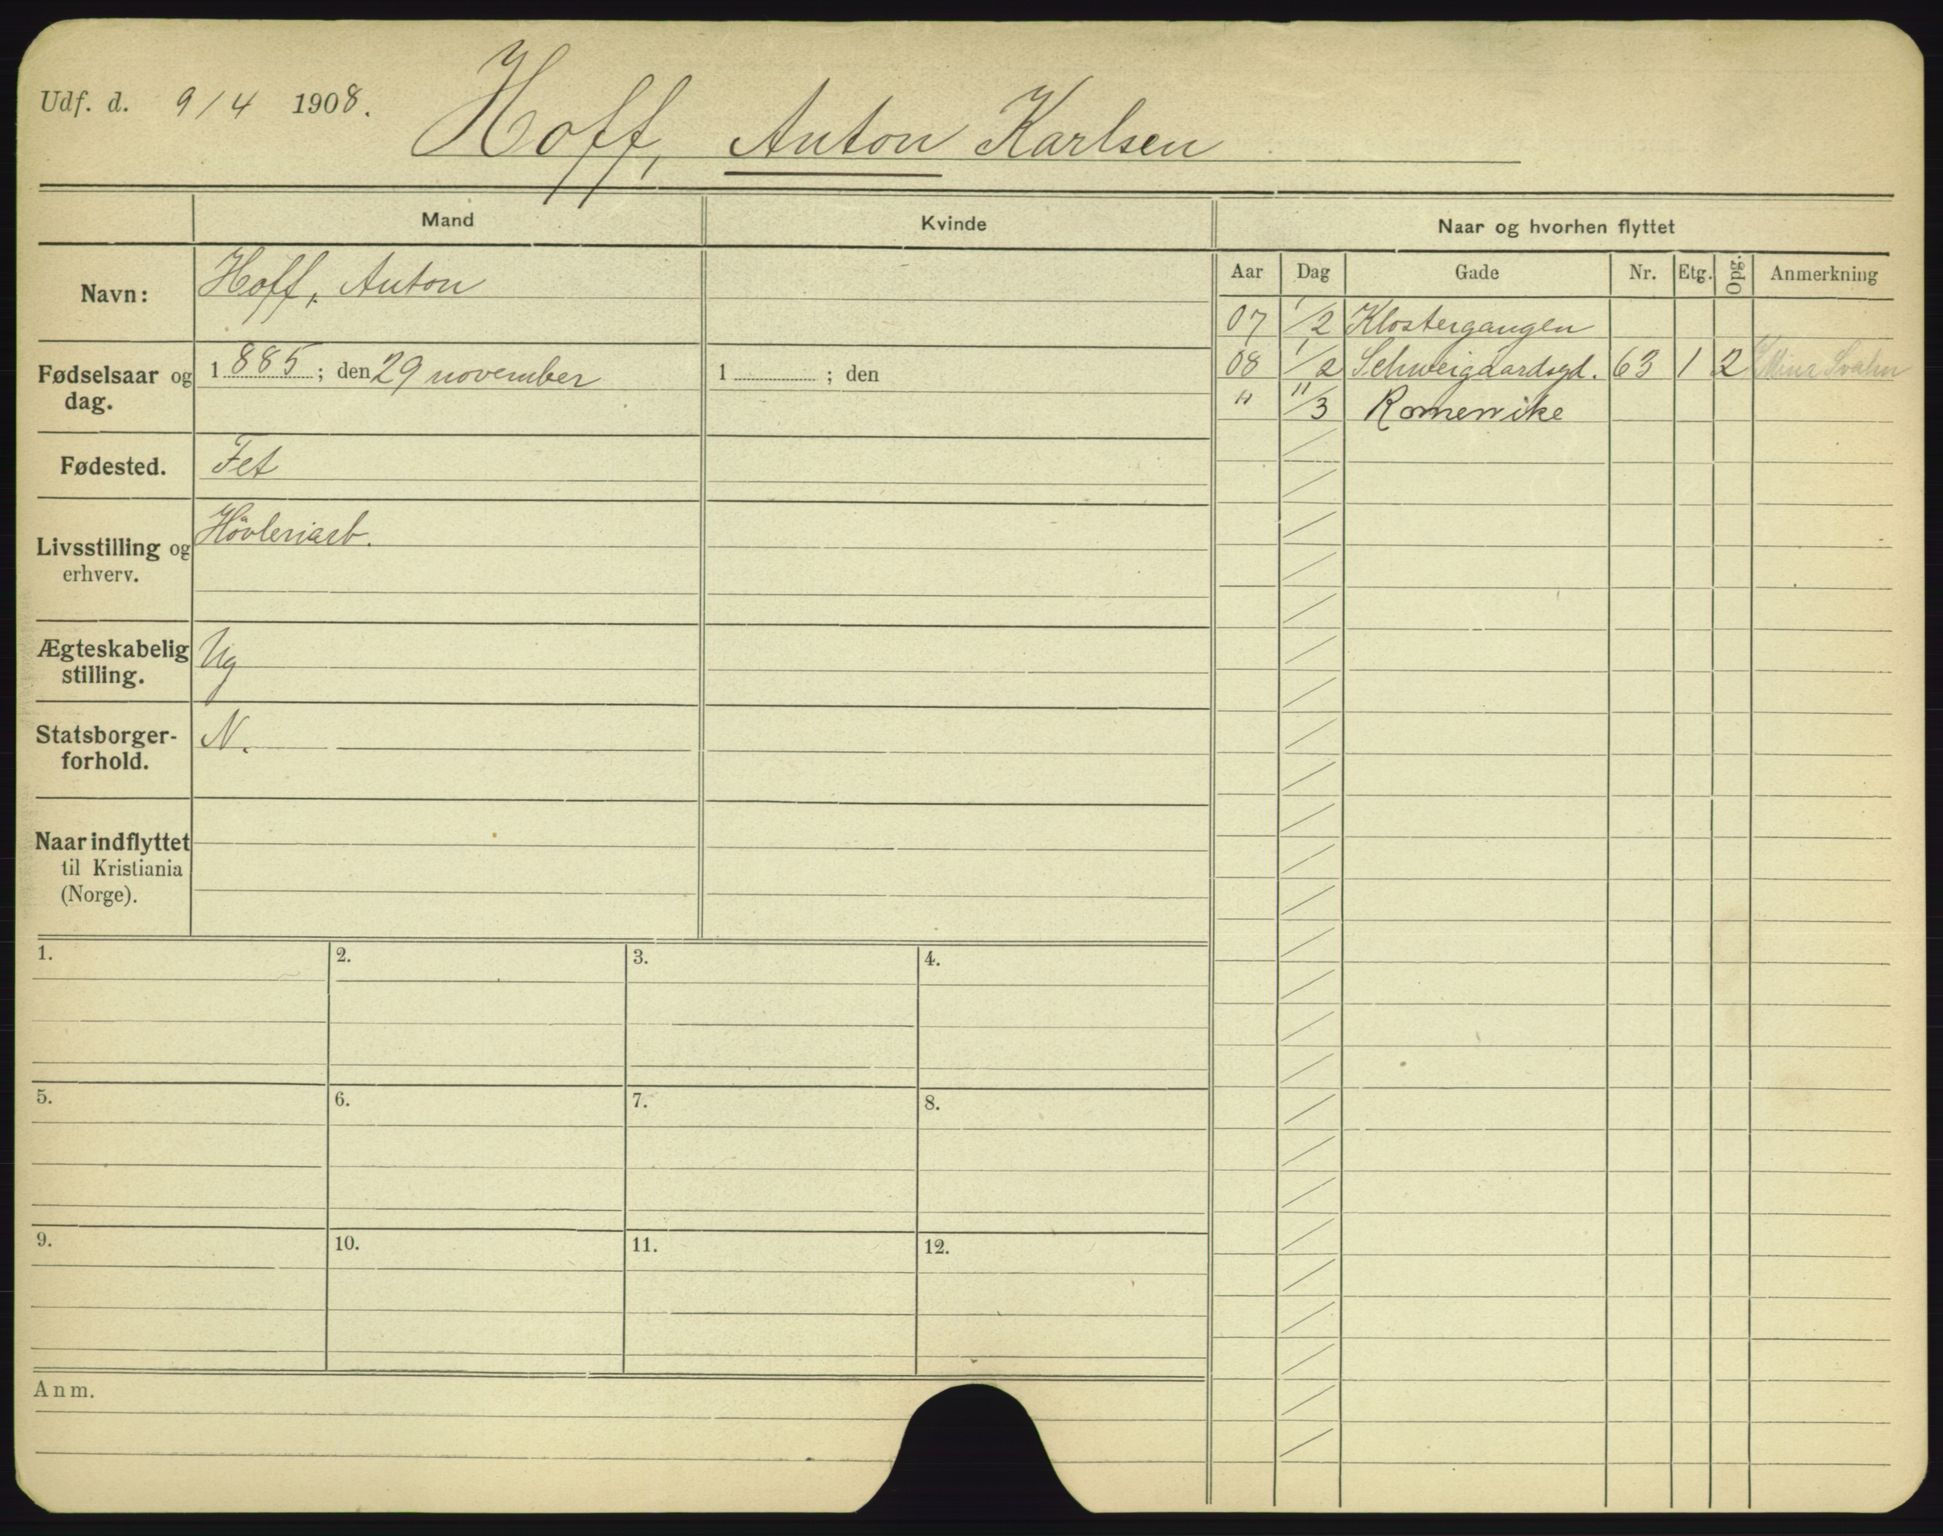 Udf. d. 9/4 1908. Hoff, Anton Karlsen
Mand Kvinde Naar og hvorhen flyttet
Aar Dag Gade Nr. Etg. Opg. Anmerkning
Navn: Hoff, Anton
07 1/2 Klostergangen
08 1/2 Schweigaardsgd. 63 1 2 Mina Svahn
" 11/3 Romerrike
Fødselsaar og dag. 1885; den 29 november 1 ; den
Fødested. Fet
Livsstilling og erhverv. Høvleriarb.
Ægteskabelig stilling. Ug
Statsborger-
forhold. N.
Naar indflyttet
til Kristiania
(Norge).
1. 2. 3. 4.
5. 6. 7. 8.
9. 10. 11. 12.
Anm.